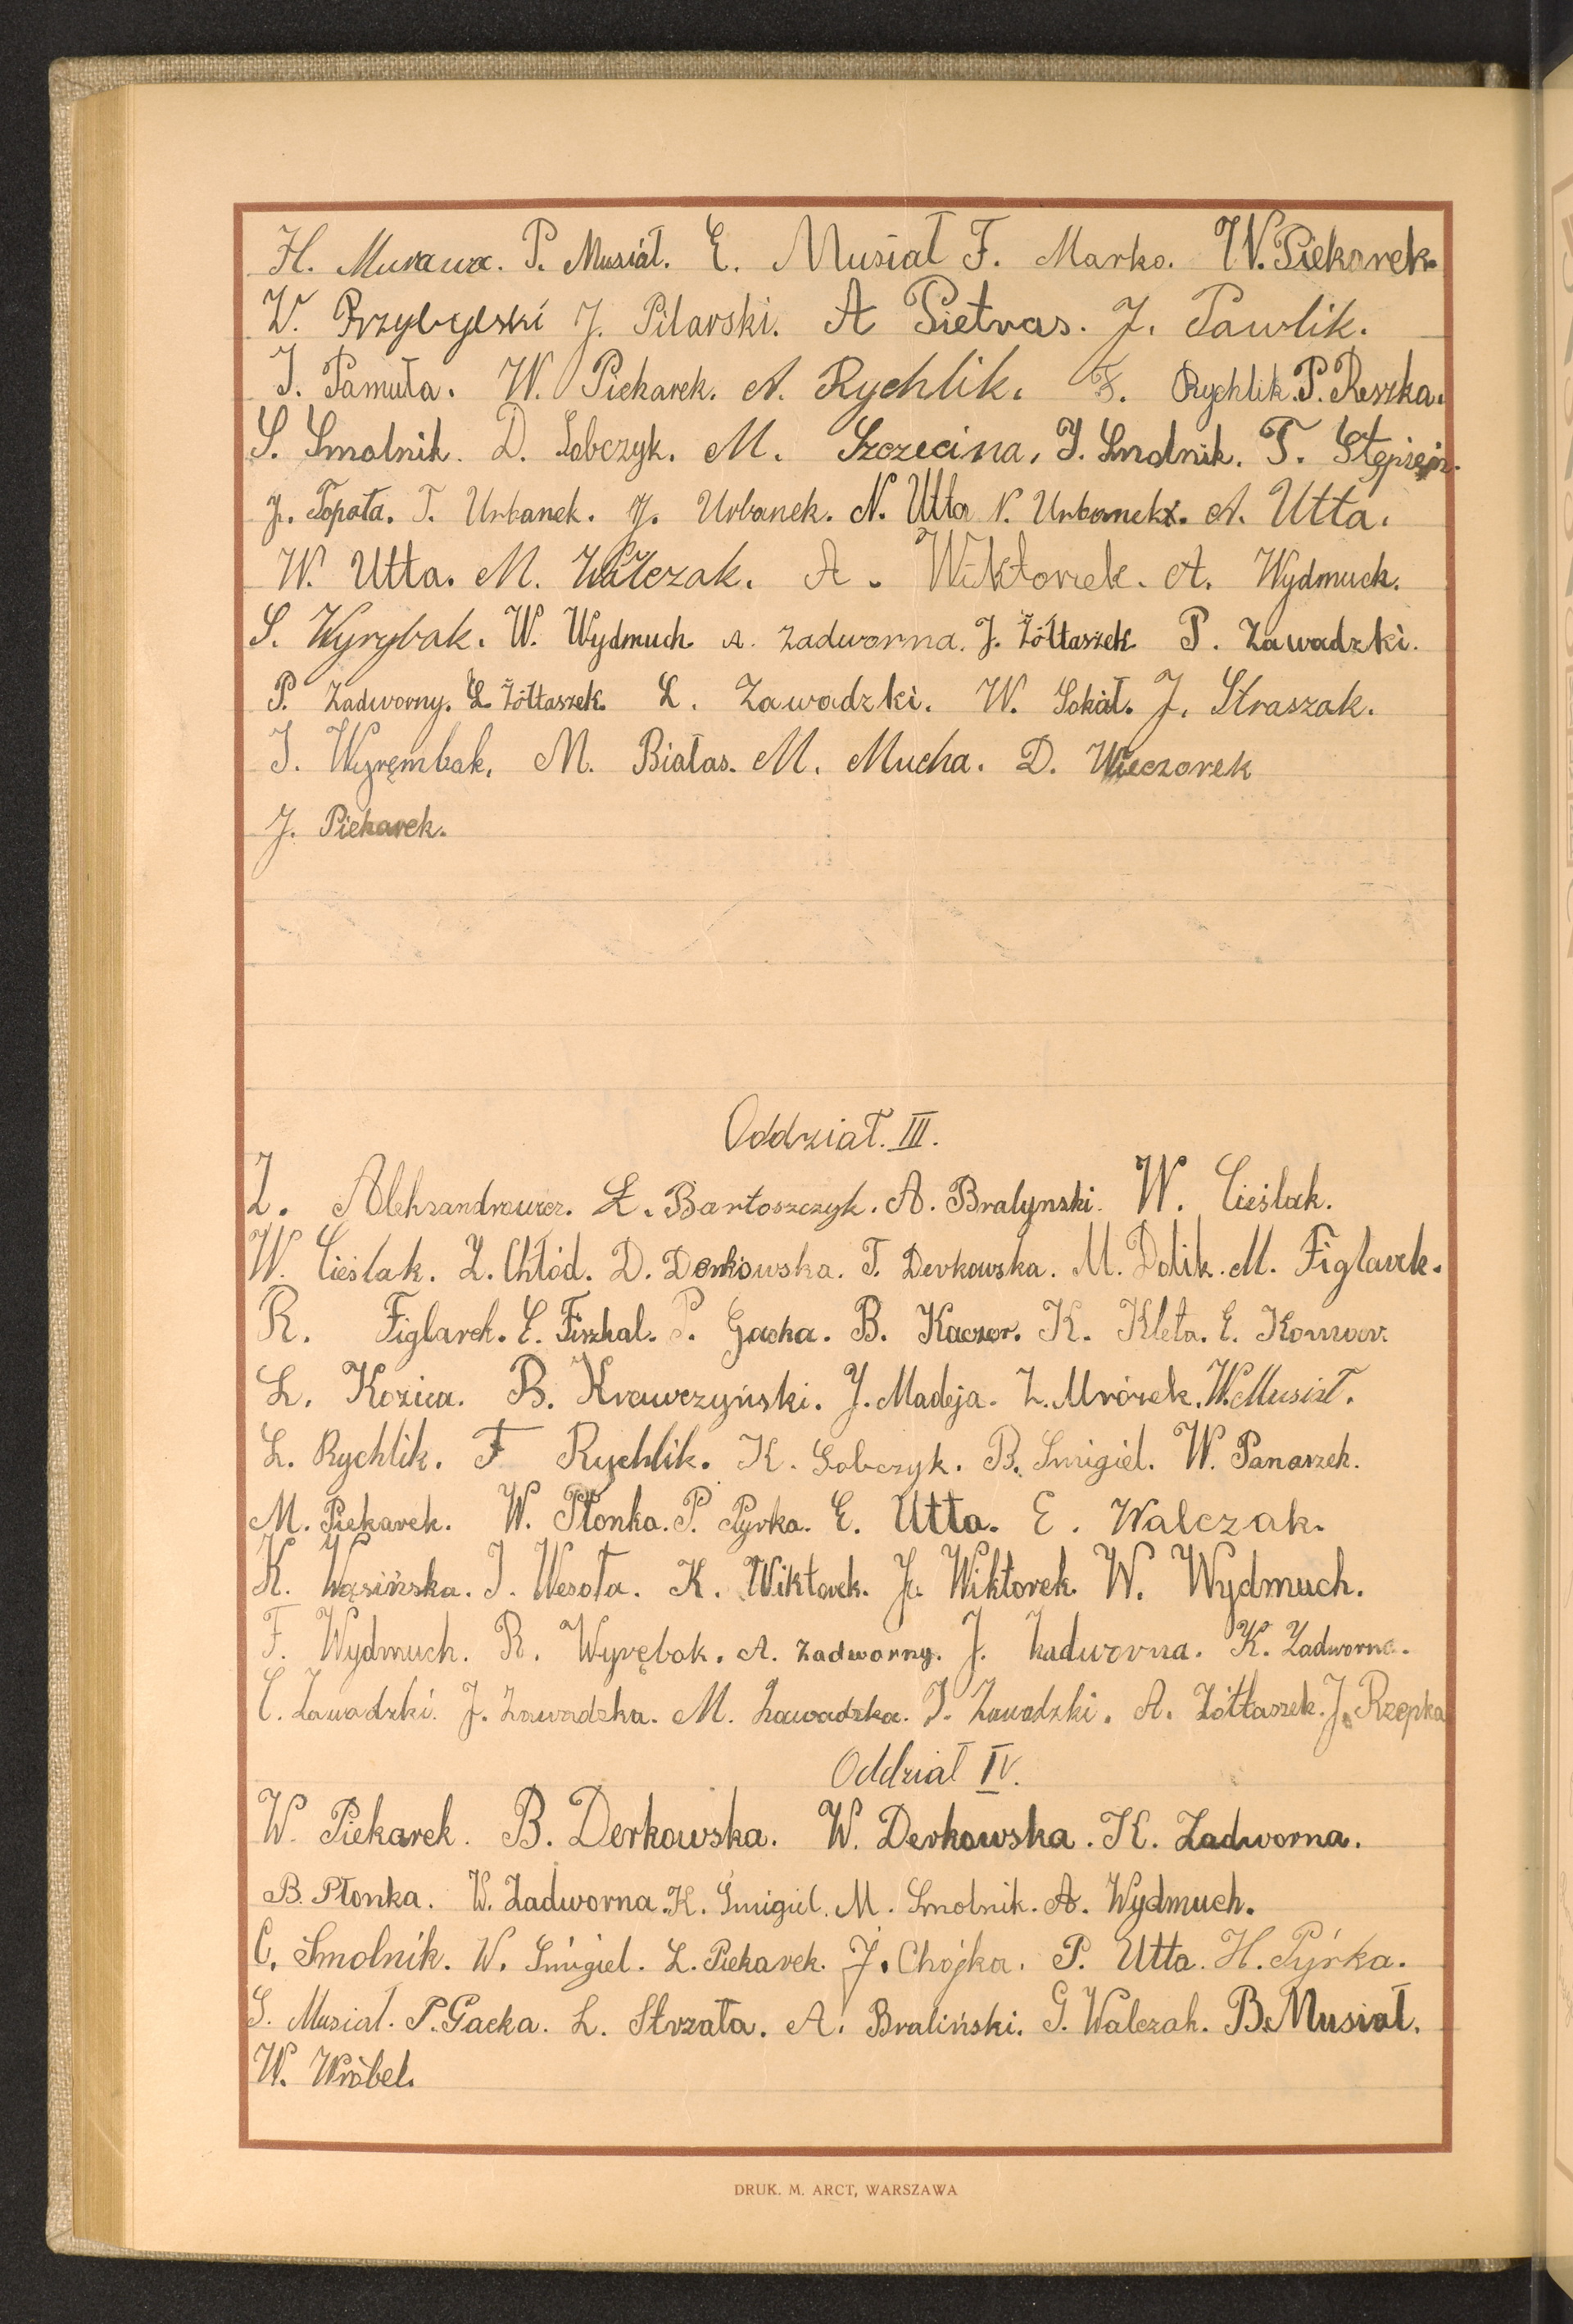 H. Murawa. P. Musiał. E. Musiał F. Marko. W. Piekarek.
W. Przybylski J. Pilarski. A Pietras. J. Pawlik.
J. Pamuła. W. Piekarek. A. Rychlik. F. Rychlik. P. Reszka.
S. Smolnik. D. Sobczyk. M. Szczecina. J. Smolnik. T. Stępień.
J. Topoła. T. Urbanek. J. Urbanek. N. Utta N. Urbanek. A. Utta.
W. Utta. M. Walczak. A. Wiktorek. A. Wydmuch.
S. Wyrybak. W. Wydmuch. A. Zadworna. J. Żółtaszek. P. Zawadzki.
P. Zadworny. L. Żółtaszek. L. Zawadzki. W. Sokół. J. Straszak.
J. Wyrębak. M. Białas. M. Mucha. D. Wieczorek
J. Piekarek.
Oddział. III.
Z. Aleksandrowicz. Ł. Bartoszczyk. A. Bralynski. W. Cieślak.
W. Cieślak. Z. Chłód. D. Derkowska. T. Derkowska. M. Dolik. M. Figlarek.
R. Figlarek. E. Fiszkal. P. Gacka. B. Kaczor. K. Kleta. E.
L. Kozica. B. Krawczyński. J. Madeja. Z. Mrózek. W. Musiał.
L. Rychlik. F Rychlik. K. Sobczyk. B. Śmigiel. W. Panaszek.
M. Piekarek. W. Płonka. P. Pyrka. E. Utta. E. Walczak.
K. Wąsińska. J. Wesoła. K. Wiktorek. J. Wiktorek. W. Wydmuch.
F. Wydmuch. R. Wyrębak. A. Zadworny. J. Zadworna. K. Zadworna.
C. Zawadzki. J. Zawadzka. M. Zawadzka. J. Zawadzki. A. Żółtaszek. J. Rzepka
Oddział IV.
W. Piekarek. B. Derkowska. W. Derkowska. K. Zadworna.
B. Płonka. W. Zadworna. K. Śmigiel. M. Smolnik. A. Wydmuch.
C. Smolnik. W. Śmigiel. L. Piekarek. J. Chójka. P. Utta. H. Pyrka.
S. Musiał. P. Gacka. L. Strzała. A. Braliński. G. Walczak. B. Musiał.
W. Wróbel.
DRUK. M. ARCT, WARSZAWA